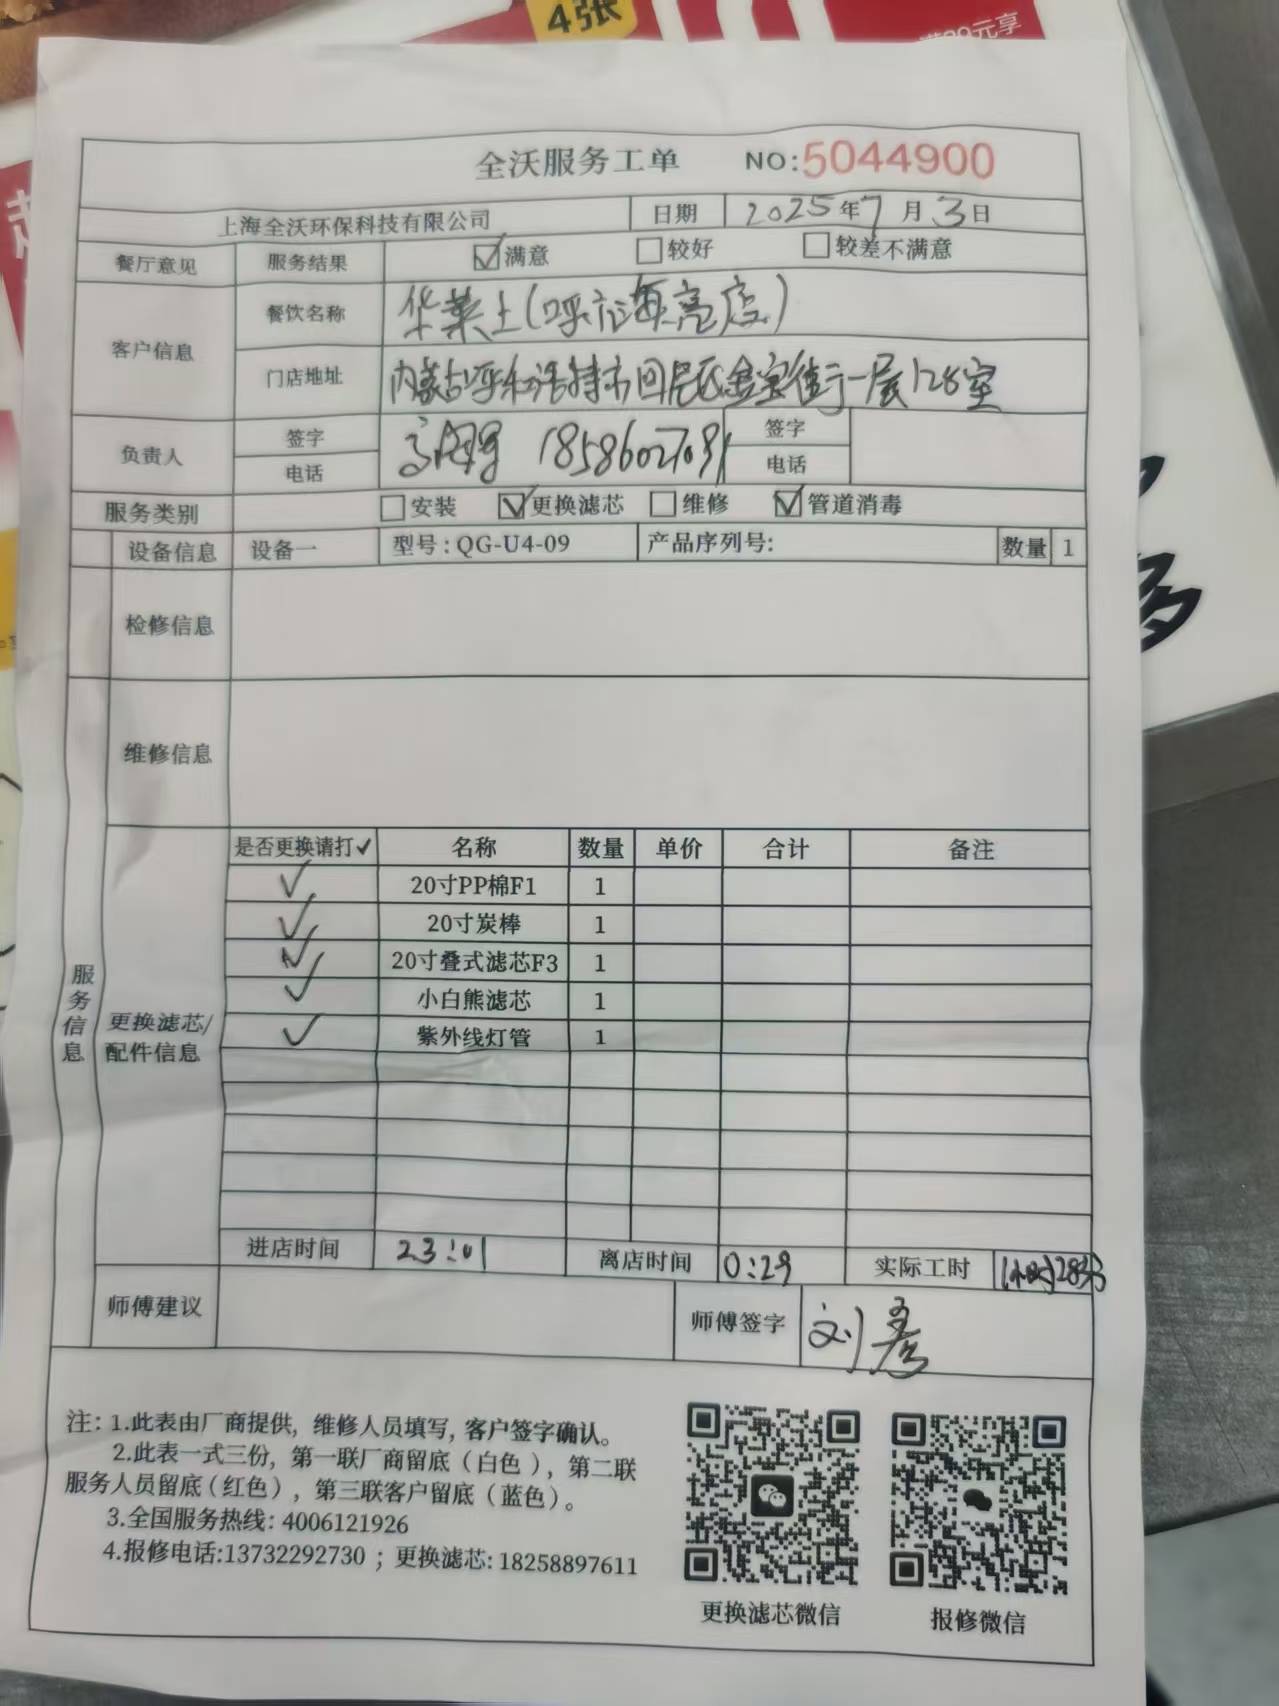 4张
满99元享
全沃服务工单 NO:5044900
上海全沃环保科技有限公司 日期 2025年7月3日
餐厅意见 服务结果 ☑满意 □较好 □较差不满意
客户信息 餐饮名称 华莱士(呼市海亮店)
门店地址 内蒙古呼和浩特市回民区金宝街一层128室
负责人 签字 签字
电话 18586027091 电话
服务类别 □安装 ☑更换滤芯 □维修 ☑管道消毒
设备信息 设备一 型号:QG-U4-09 产品序列号: 数量 1
检修信息
维修信息
服务信息
更换滤芯/
配件信息
是否更换请打✓ 名称 数量 单价 合计 备注
✓ 20寸PP棉F1 1
✓ 20寸炭棒 1
✓ 20寸叠式滤芯F3 1
✓ 小白熊滤芯 1
✓ 紫外线灯管 1
进店时间 23:01 离店时间 0:29 实际工时 1小时28分
师傅建议 师傅签字 刘彥
注: 1.此表由厂商提供, 维修人员填写, 客户签字确认。
2.此表一式三份, 第一联厂商留底 (白色), 第二联
服务人员留底 (红色), 第三联客户留底 (蓝色)。
3.全国服务热线: 4006121926
4.报修电话:13732292730 ; 更换滤芯: 18258897611
更换滤芯微信 报修微信